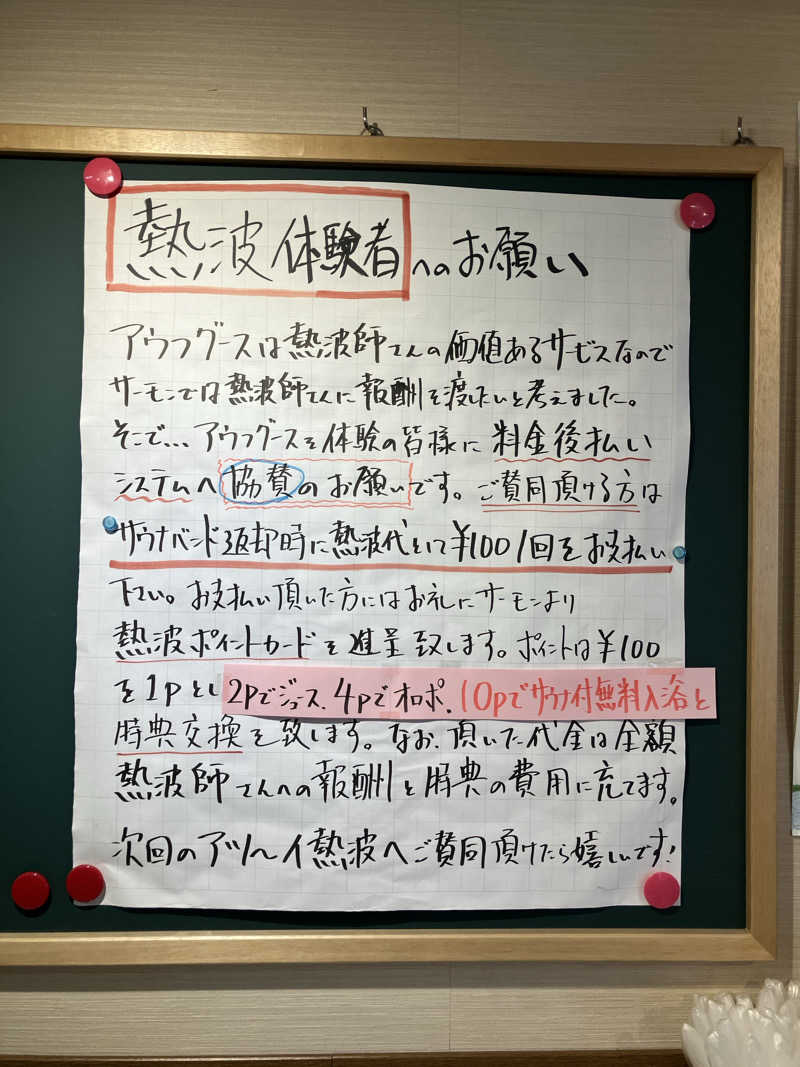 熱波体験者へのお願い
アウフグースは熱波師さんの価値あるサービスなので
サーモンでは熱波師さんに報酬を渡したいと考えました。
そこで…アウフグースを体験の皆様に料金後払い
システムへ協賛のお願いです。ご賛同頂ける方は
サウナバンド返却時に熱波代として¥100/1回をお支払い
下さい。お支払い頂いた方にはお礼にサーモンより
熱波ポイントカードを進呈致します。ポイントは¥100
を1pとし2pでジュース、4pでオロポ、10pでサウナ付無料入浴と
特典交換を致します。なお、頂いた代金は全額
熱波師さんへの報酬と特典の費用に充てます。
次回のアツ〜イ熱波へご賛同頂けたら嬉しいです!